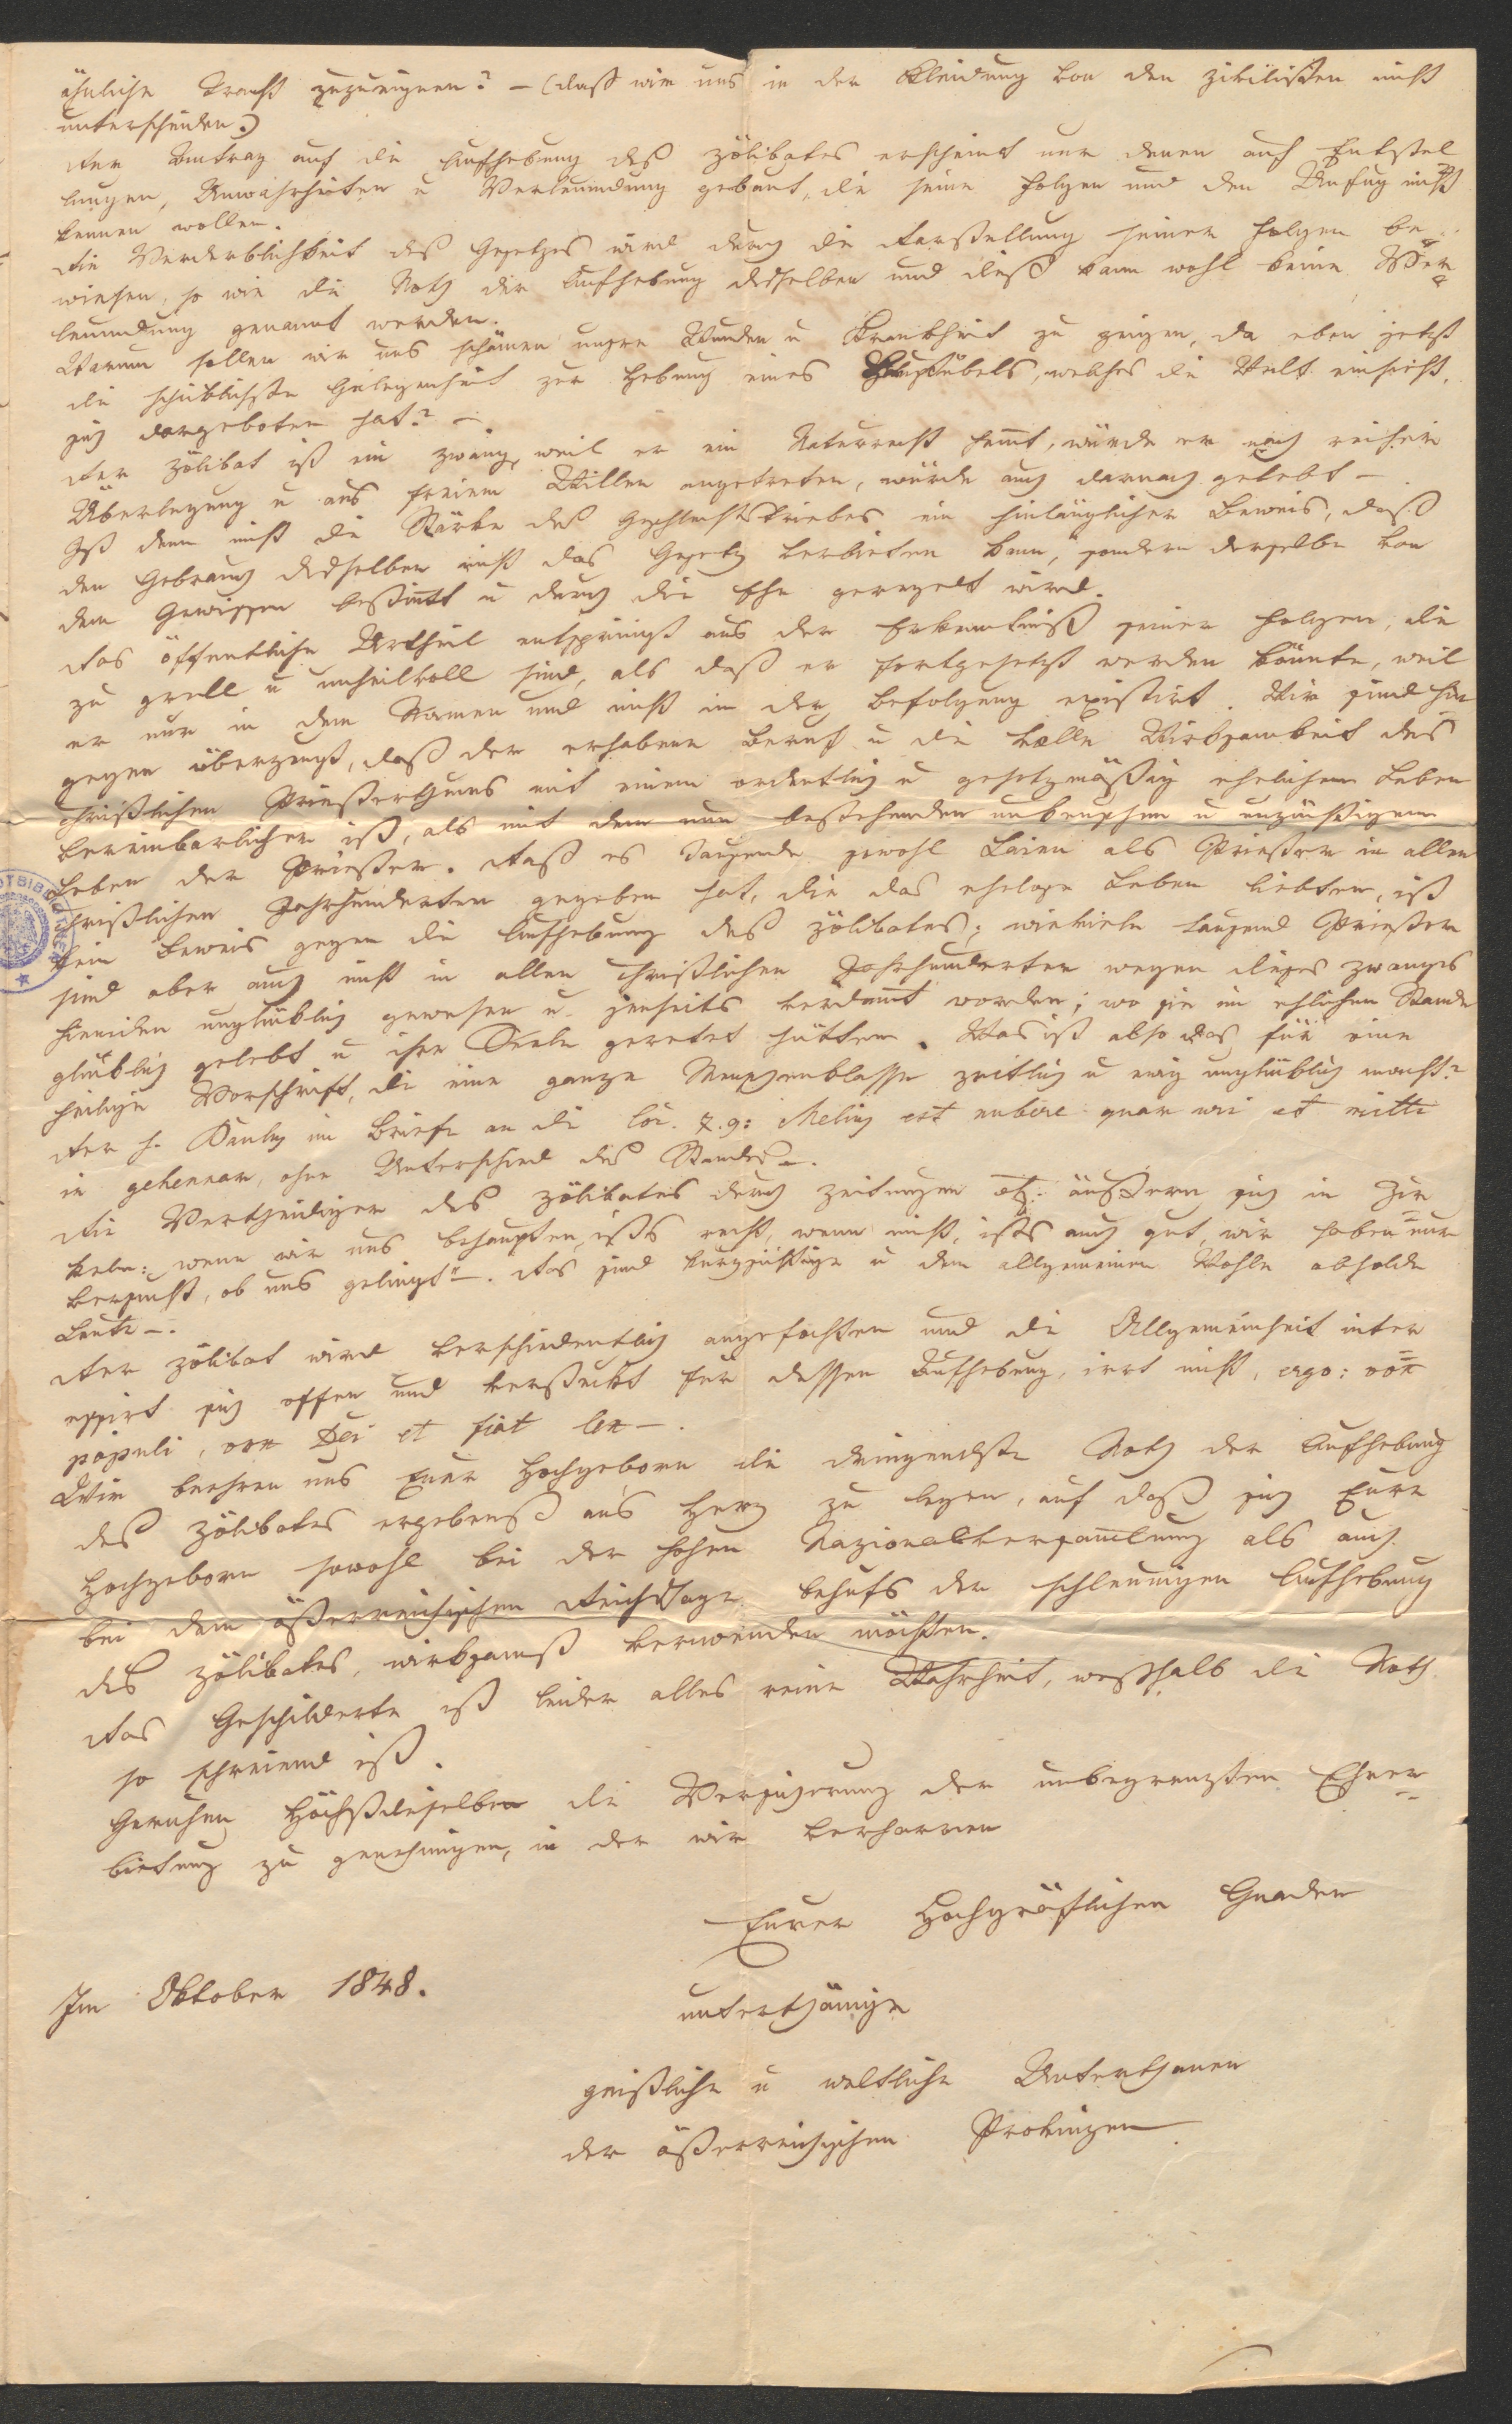 ähnliche Tracht zuzueignen? – (daß wir uns in der Kleidung von den Zivilisten nicht
unterscheiden.)
Der Antrag auf die Aufhebung des Zölibates erscheint nur denen auf Entstel
lungen, Unwahrheiten u Verleumdung gebaut, die seine Folgen und den Unfug nicht
kennen wollen.
Die Verderblichkeit des Gesetzes wird durch die Darstellung seiner Folgen be-
wiesen, so wie die Noth der Aufhebung desselben und dieß kann wohl keine Ver=
leumdung genannt werden.
Warum sollen wir uns schämen unsre Wunden u Krankheit zu zeigen, da eben jetzt
die schicklichste Gelegenheit zur Hebung eines Hauptübels, welches die Welt einsieht,
sich dargeboten hat? –.
Der Zölibat ist ein Zwang, weil er ein Naturrecht hemt, würde er nach reifer
Überlegung u aus freiem Willen angetreten, würde auch darnach gelebt –.
Ist denn nicht die Stärke des Geschlechtstriebes ein hinlänglicher Beweis, daß
den Gebrauch desselben nicht das Gesetz verbieten kann, sondern derselbe von
dem Gewissen bestimt u durch die Ehe geregelt wird.
Das öffentliche Urtheil entspringt aus der Erkenntniß seiner Folgen, die
zu grell u unheilvoll sind, als daß er fortgesetzt werden könnte, weil
er nur in dem Namen und nicht in der Befolgung existirt. Wir sind hin
gegen überzeugt, daß der erhabene Beruf u die volle Wirksamkeit des
christlichen Priesterthums mit einem ordentlich u gesetzmäßig ehelichem Leben
vereinbarlicher ist, als mit dem nun bestehenden unkeuschen u unzüchtigem
Leben der Priester. Daß es Tausende sowohl Laien als Priester in allen
christlichen Jahrhunderten gegeben hat, die das ehelose Leben liebten, ist
kein Beweis gegen die Aufhebung des Zölibates; wieviele tausend Priester
sind aber auch nicht in allen christlichen Jahrhunderten wegen dieses Zwanges
hienieden unglücklich gewesen u jenseits verdamt worden; wo sie im ehlichen Stande
glücklich gelebt u ihre Seele gerettet hätten. Was ist also das für eine
heilige Vorschrift, die eine ganze Menschenklasse zeitlich u ewig unglücklich macht?
Der h. Paulus im Briefe an die Cor. 7.9: Melius est nubere quam uri et mitti
in gehennam, ohne Unterschied des Standes –.
Die Vertheidiger des Zölibates durch Zeitungen etz. äußern sich in Zir
keln: „wenn wir uns behaupten, ists recht, wenn nicht, ists auch gut, wir haben nur
versucht, ob uns gelingt“ –. Das sind kurzsichtige u dem allgemeinen Wohle abholde
Leute –.
Der Zölibat wird verschiedentlich angefochten und die Allgemeinheit inter
essirt sich offen und versteckt für dessen Aufhebung, irrt nicht, ergo: vox
populi, vox Dei et fiat lex –.
Wir beehren uns Euer Hochgeborn die dringendste Noth der Aufhebung
des Zölibates ergebenst ans Herz zu legen, auf daß sich Eure
Hochgeborn sowohl bei der hohen Nazionalversamlung als auch
bei dem österreichischen Reichstage behufs der schleunigen Aufhebung
des Zölibates, wirksamst verwenden möchten.
Das Geschilderte ist leider alles reine Wahrheit, weßhalb die Noth
so schreiend ist.
Geruhen Höchstdieselben die Versicherung der unbegrenzten Ehrer=
bietung zu genehmigen, in der wir verharren
Eurer Hochgräflichen Gnaden
Im Oktober 1848.
unterthänige
geistliche u weltliche Unterthanen
der österreichischen Provinzen